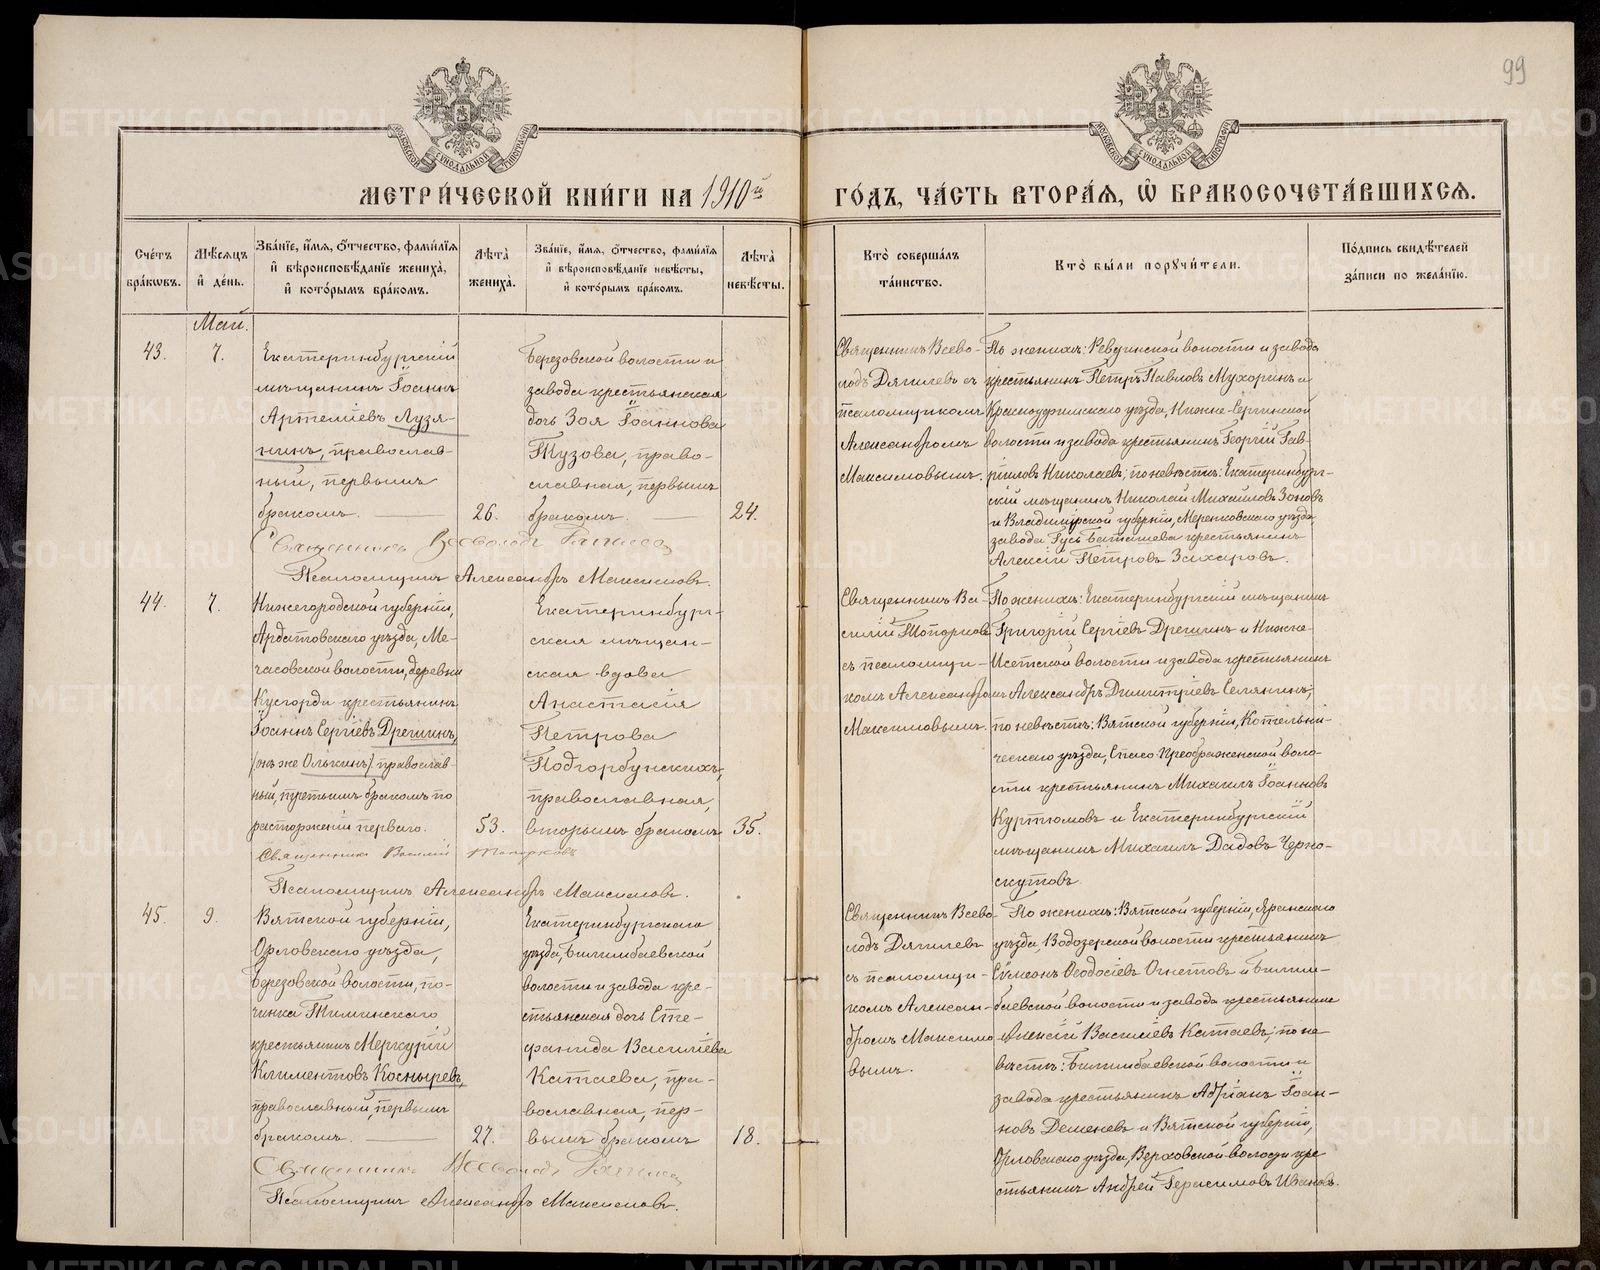 99
МОСКОВСКОЙ СѴНОДАЛЬНОЙ ТИПОГРАФІИ
МОСКОВСКОЙ СѴНОДАЛЬНОЙ ТИПОГРАФІИ
МЕТРИ́ЧЕСКОЙ КНИ́ГИ НА 1910й ГО́ДЪ, ЧА́СТЬ ВТОРА́Я, Ѡ҆ БРАКОСОЧЕТА́ВШИХСѦ.
Сче́тъ бра́кѡвъ.
Мѣ́сѧцъ и҆ де́нь.
Зва́нїе, и҆́мѧ, ѻ҆́тчество, фами́лїѧ
и҆ вѣроисповѣ́данїе жениха̀,
и҆ кото́рымъ бра́комъ.
Лѣта̀ жениха̀.
Зва́нїе, и҆́мѧ, ѻ҆́тчество, фами́лїѧ
и҆ вѣроисповѣ́данїе невѣ́сты,
и҆ кото́рымъ бра́комъ.
Лѣта̀ невѣ́сты.
Кто̀ соверша́лъ
та́инство.
Кто̀ бы́ли порꙋчи́тели.
По́дпись свидѣ́телей
за́писи по жела́нїю.
Май.
43.
7.
Екатеринбургскій
мѣщанинъ Іоаннъ
Артеміевъ Лузя-
нинъ, православ-
ный, первымъ
бракомъ.
26.
Березовской волости и
завода крестьянская
дочь Зоя Іоаннова
Тузова, право-
славная, первымъ
бракомъ.
24.
Священникъ Всево-
лодъ Дягилевъ съ
псаломщикомъ
Александромъ
Максимовымъ.
По женихѣ: Ревдинской волости и завода
крестьянинъ Петръ Павловъ Мухоринъ и
Красноуфимскаго уѣзда, Нижне-Сергинской
волости и завода крестьянинъ Георгій Гав-
рииловъ Николаевъ; по невѣстѣ: Екатеринбург-
скій мѣщанинъ Николай Михайловъ Зоновъ
и Владимірской губерніи, Меленковскаго уѣзда
завода Гусь Баташева крестьянинъ
Алексій Петровъ Захаровъ.
Священникъ Всеволодъ Дягилевъ
Псаломщикъ Александръ Максимовъ.
44.
7.
Нижегородской губерніи,
Ардатовскаго уѣзда, Ме-
часовской волости, деревни
Кусторди крестьянинъ
Іоаннъ Сергіевъ Дрешинъ,
(онъ же Олькинъ) православ-
ный, третьимъ бракомъ по
расторженіи перваго.
53.
Екатеринбург-
ская мѣщан-
ская вдова
Анастасія
Петрова
Подгорбунскихъ,
православная,
вторымъ бракомъ
35.
Священникъ Ва-
силій Топорковъ
съ псаломщи-
комъ Александромъ
Максимовымъ.
По женихѣ: Екатеринбургскій мѣщанинъ
Григорій Сергіевъ Дрешинъ и Нижне-
Исетской волости и завода крестьянинъ
Александръ Димитріевъ Селянинъ;
по невѣстѣ: Вятской губерніи, Котельни-
ческаго уѣзда, Спасо-Преображенской воло-
сти крестьянинъ Михаилъ Іоанновъ
Куртомовъ и Екатеринбургскій
мѣщанинъ Михаилъ Дадовъ Черно-
скутовъ.
Священникъ Василій Топорковъ
Псаломщикъ Александръ Максимовъ.
45.
9.
Вятской губерніи,
Орловскаго уѣзда,
Березовской волости, по-
чинка Тиминскаго
крестьянинъ Меркурій
Климентовъ Косныревъ,
православный, первымъ
бракомъ.
27.
Екатеринбургскаго
уѣзда, Билимбаевской
волости и завода кре-
стьянская дочь Сте-
фанида Василіева
Катаева, пра-
вославная, пер-
вымъ бракомъ
18.
Священникъ Всево-
лодъ Дягилевъ
съ псаломщи-
комъ Алексан-
дромъ Максимо-
вымъ.
По женихѣ: Вятской губерніи, Яранскаго
уѣзда, Водозерской волости крестьянинъ
Сѵмеонъ Ѳеодосіевъ Огнетовъ и Билим-
баевской волости и завода крестьянинъ
Алексій Василіевъ Катаевъ; по не-
вѣстѣ: Билимбаевской волости и
завода крестьянинъ Адріанъ Іоан-
новъ Деменевъ и Вятской губерніи,
Орловскаго уѣзда, Верховской волости кре-
стьянинъ Андрей Герасимовъ Ивановъ.
Священникъ Всеволодъ Дягилевъ
Псаломщикъ Александръ Максимовъ.
METRIKI.GASO-URAL.RU